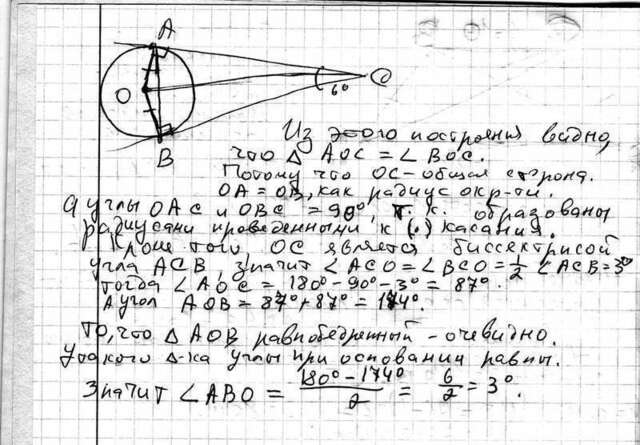 A
O
B
C
6°
Из этого построения видно,
что △ AOC = ∠ BOC.
Потому что OC - общая сторона.
OA = OB, как радиус окр-ти.
А углы OAC и OBC = 90°, т.к. образованы
радиусами проведенными к (·) касания.
Кроме того OC является биссектрисой
угла ACB, значит ∠ ACO = ∠ BCO = 1/2 ∠ ACB = 3°
тогда ∠ AOC = 180° - 90° - 3° = 87°.
А угол AOB = 87° + 87° = 174°.
То, что △ AOB равнобедренный - очевидно.
У такого △-ка углы при основании равны.
Значит ∠ ABO = (180° - 174°)/2 = 6/2 = 3°.